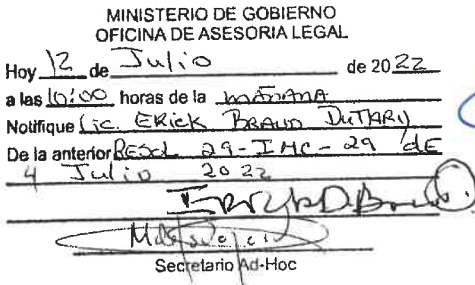 MINISTERIO DE GOBIERNO
OFICINA DE ASESORIA LEGAL
Hoy 12 de Julio de 2022
a las 10:00 horas de la mañana
Notifique Lic. ERick BRAUD DUTARY
De la anterior RESOL 29-IMC-29 dE
4 Julio 2022
Secretario Ad-Hoc